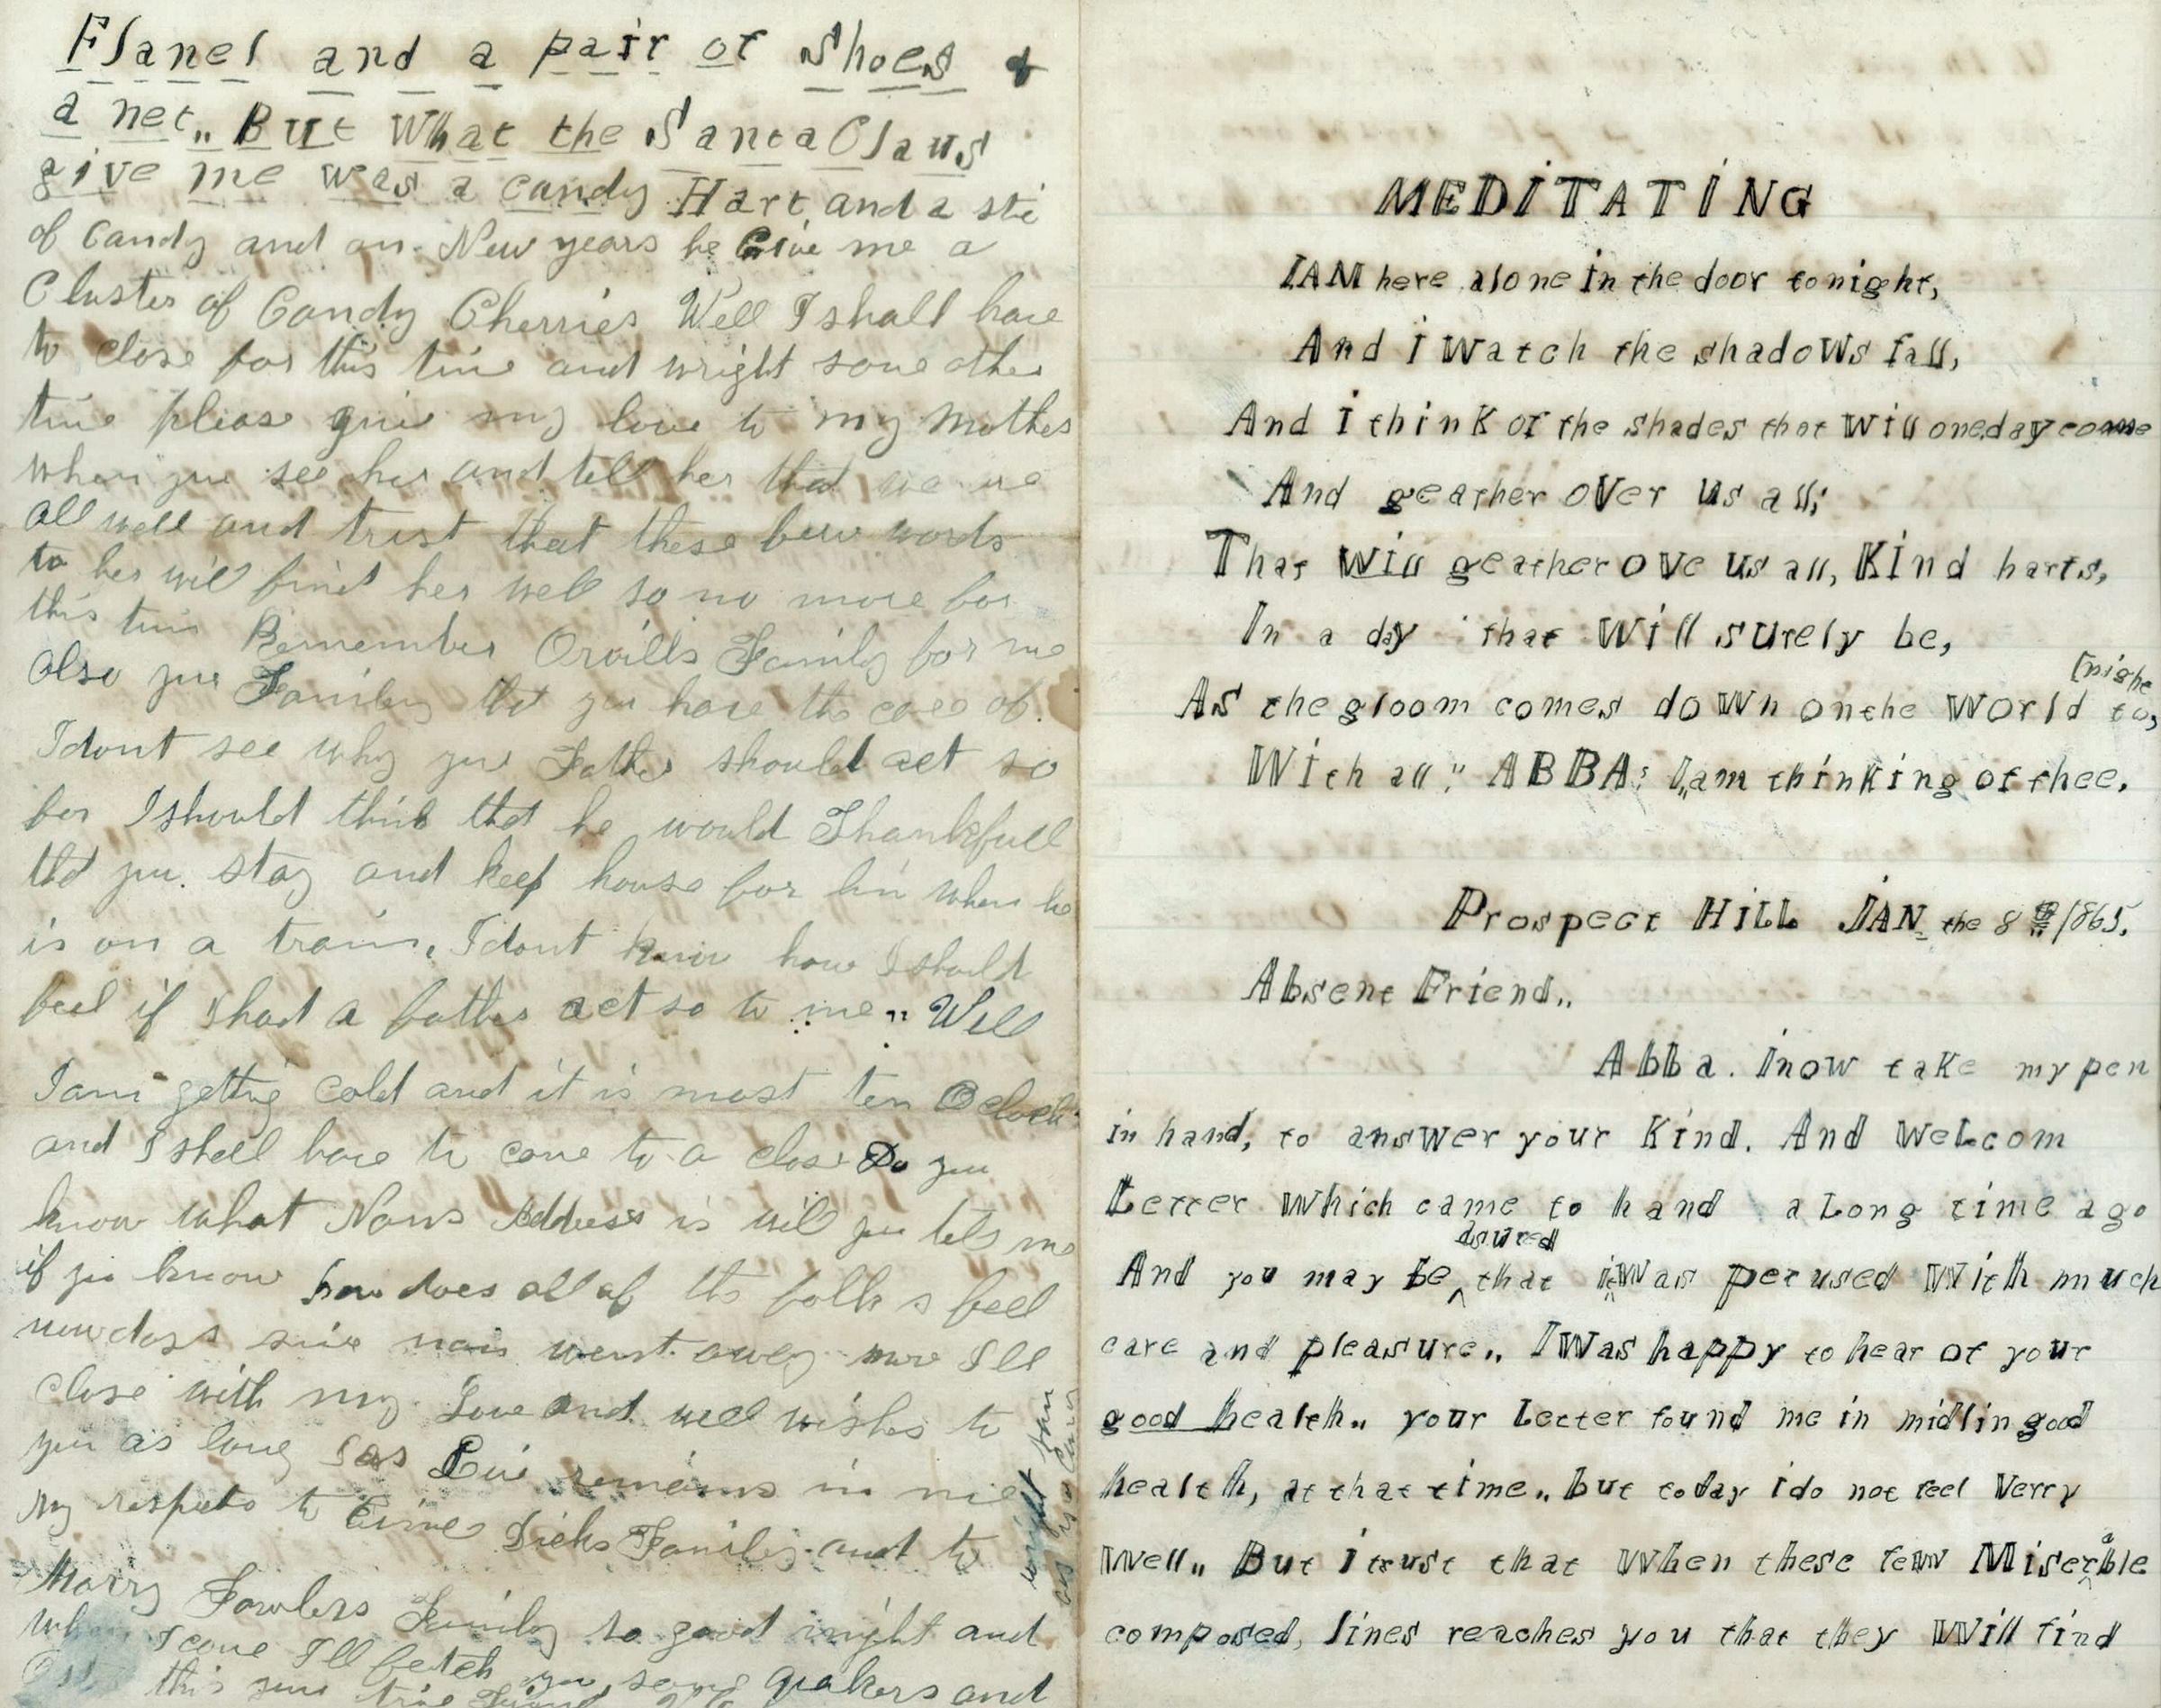 Flanel and a pair of Shoes &
a net,, But What the Santa Claus
give me was a candy Hart, and a sti
of Candy and on New years he Give me a
Cluster of Candy Cherries Well I shall have
to close for this time and wright some other
time pleas give my love to my Mother
when you see her and tell her that we are
all well and trust that these few words
to her will find her well so no more for
this time Remember Orvills Family for me
also your Family that you have the care of.
I dont see why your Father should act so
for I should think that he would Thankfull
that you. stay and keep house for him when he
is on a train, I dont know how I should
feel if I had a father act so to me,, Well
I am getting cold and it is most ten Oclock
and I shall have to come to a close Do you
know what Nans Address is will you tell me
if you know how does all of the folks feel
now days since nan went away now Ill
close with my Love and well wishes to
you as long as Live remains in me
My respects to Dicks Family and to
Marry Fowlers Family so good night and
when I come Ill fetch you some quakers and
this your true Friend
wright soon
MEDITATING
I AM here alone in the door tonight,
And i Watch the shadows fall,
And i think of the shades that Will one day come
And geather over us all;
That Will geather ove us all, Kind harts,
In a day that Will surely be,
As the gloom comes down on the World to,
[night
With all," ABBA; I,,am thinking of thee.
Prospect HiLL JAN the 8th 1865.
Absent Friend,,
Abba. I now take my pen
in hand, to answer your Kind. And WeLcom
Letter Which came to hand a Long time ago
asured
And you may be ^ that it Was perused With much
care and pleasure,, I Was happy to hear of your
good health,, your Letter found me in midlin good
health, at that time,, but today i do not feel Verry
Well,, But i trust that When these few Miserable
composed, lines reaches you that they Will find